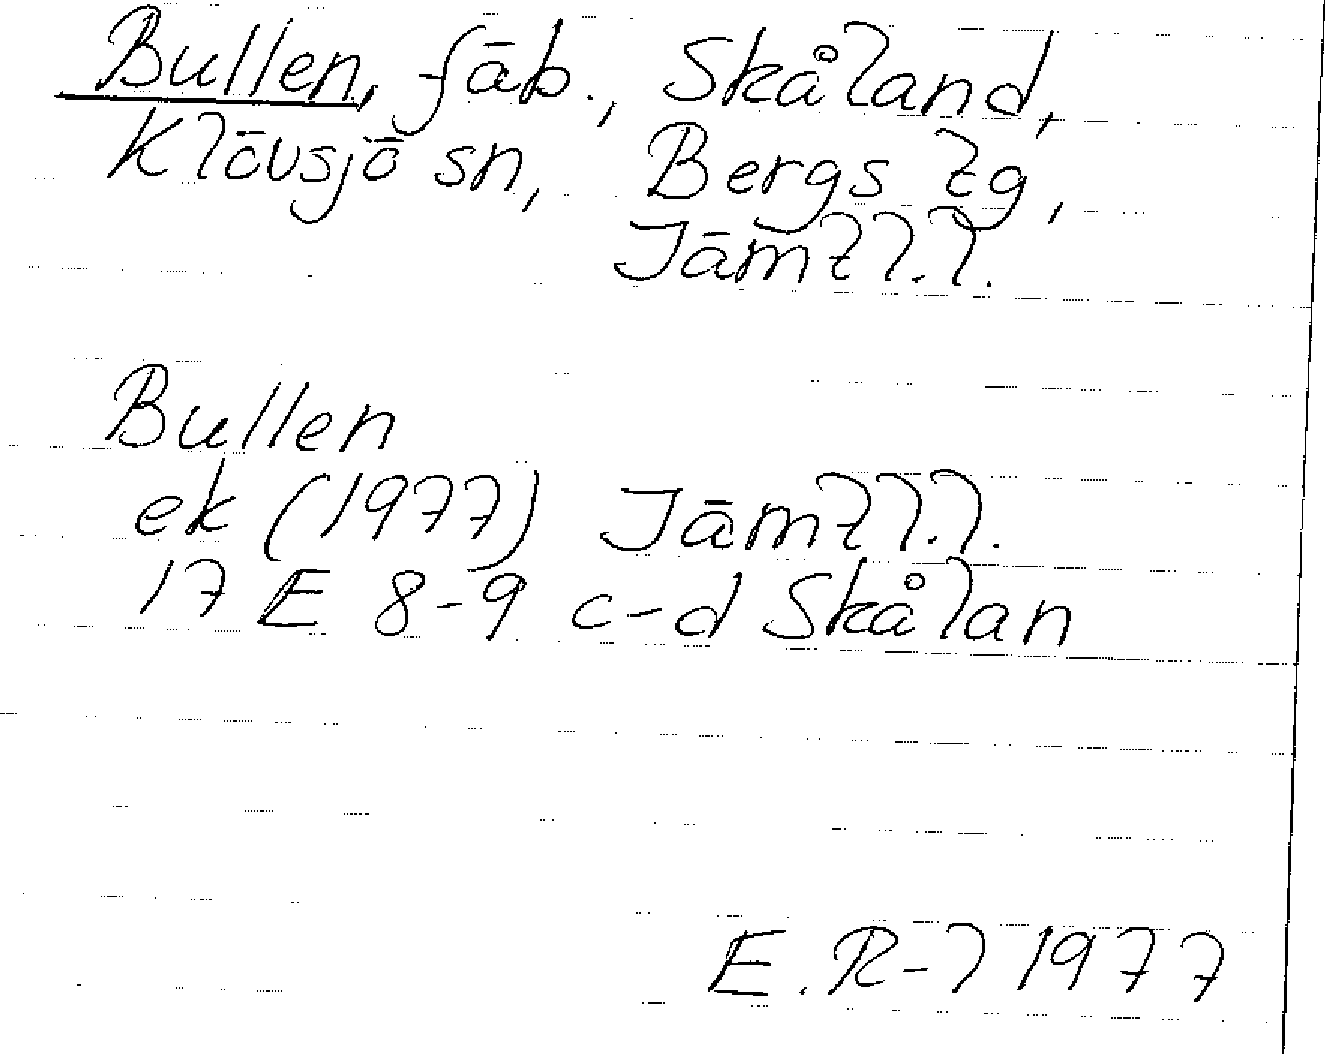 Bullen, fäb., Skåland,
Klövsjö sn, Bergs tg,
Jämtl.l.
Bullen
ek (1977) Jämtl.l.
17 E 8-9 c-d Skålan
E.R-l 1977